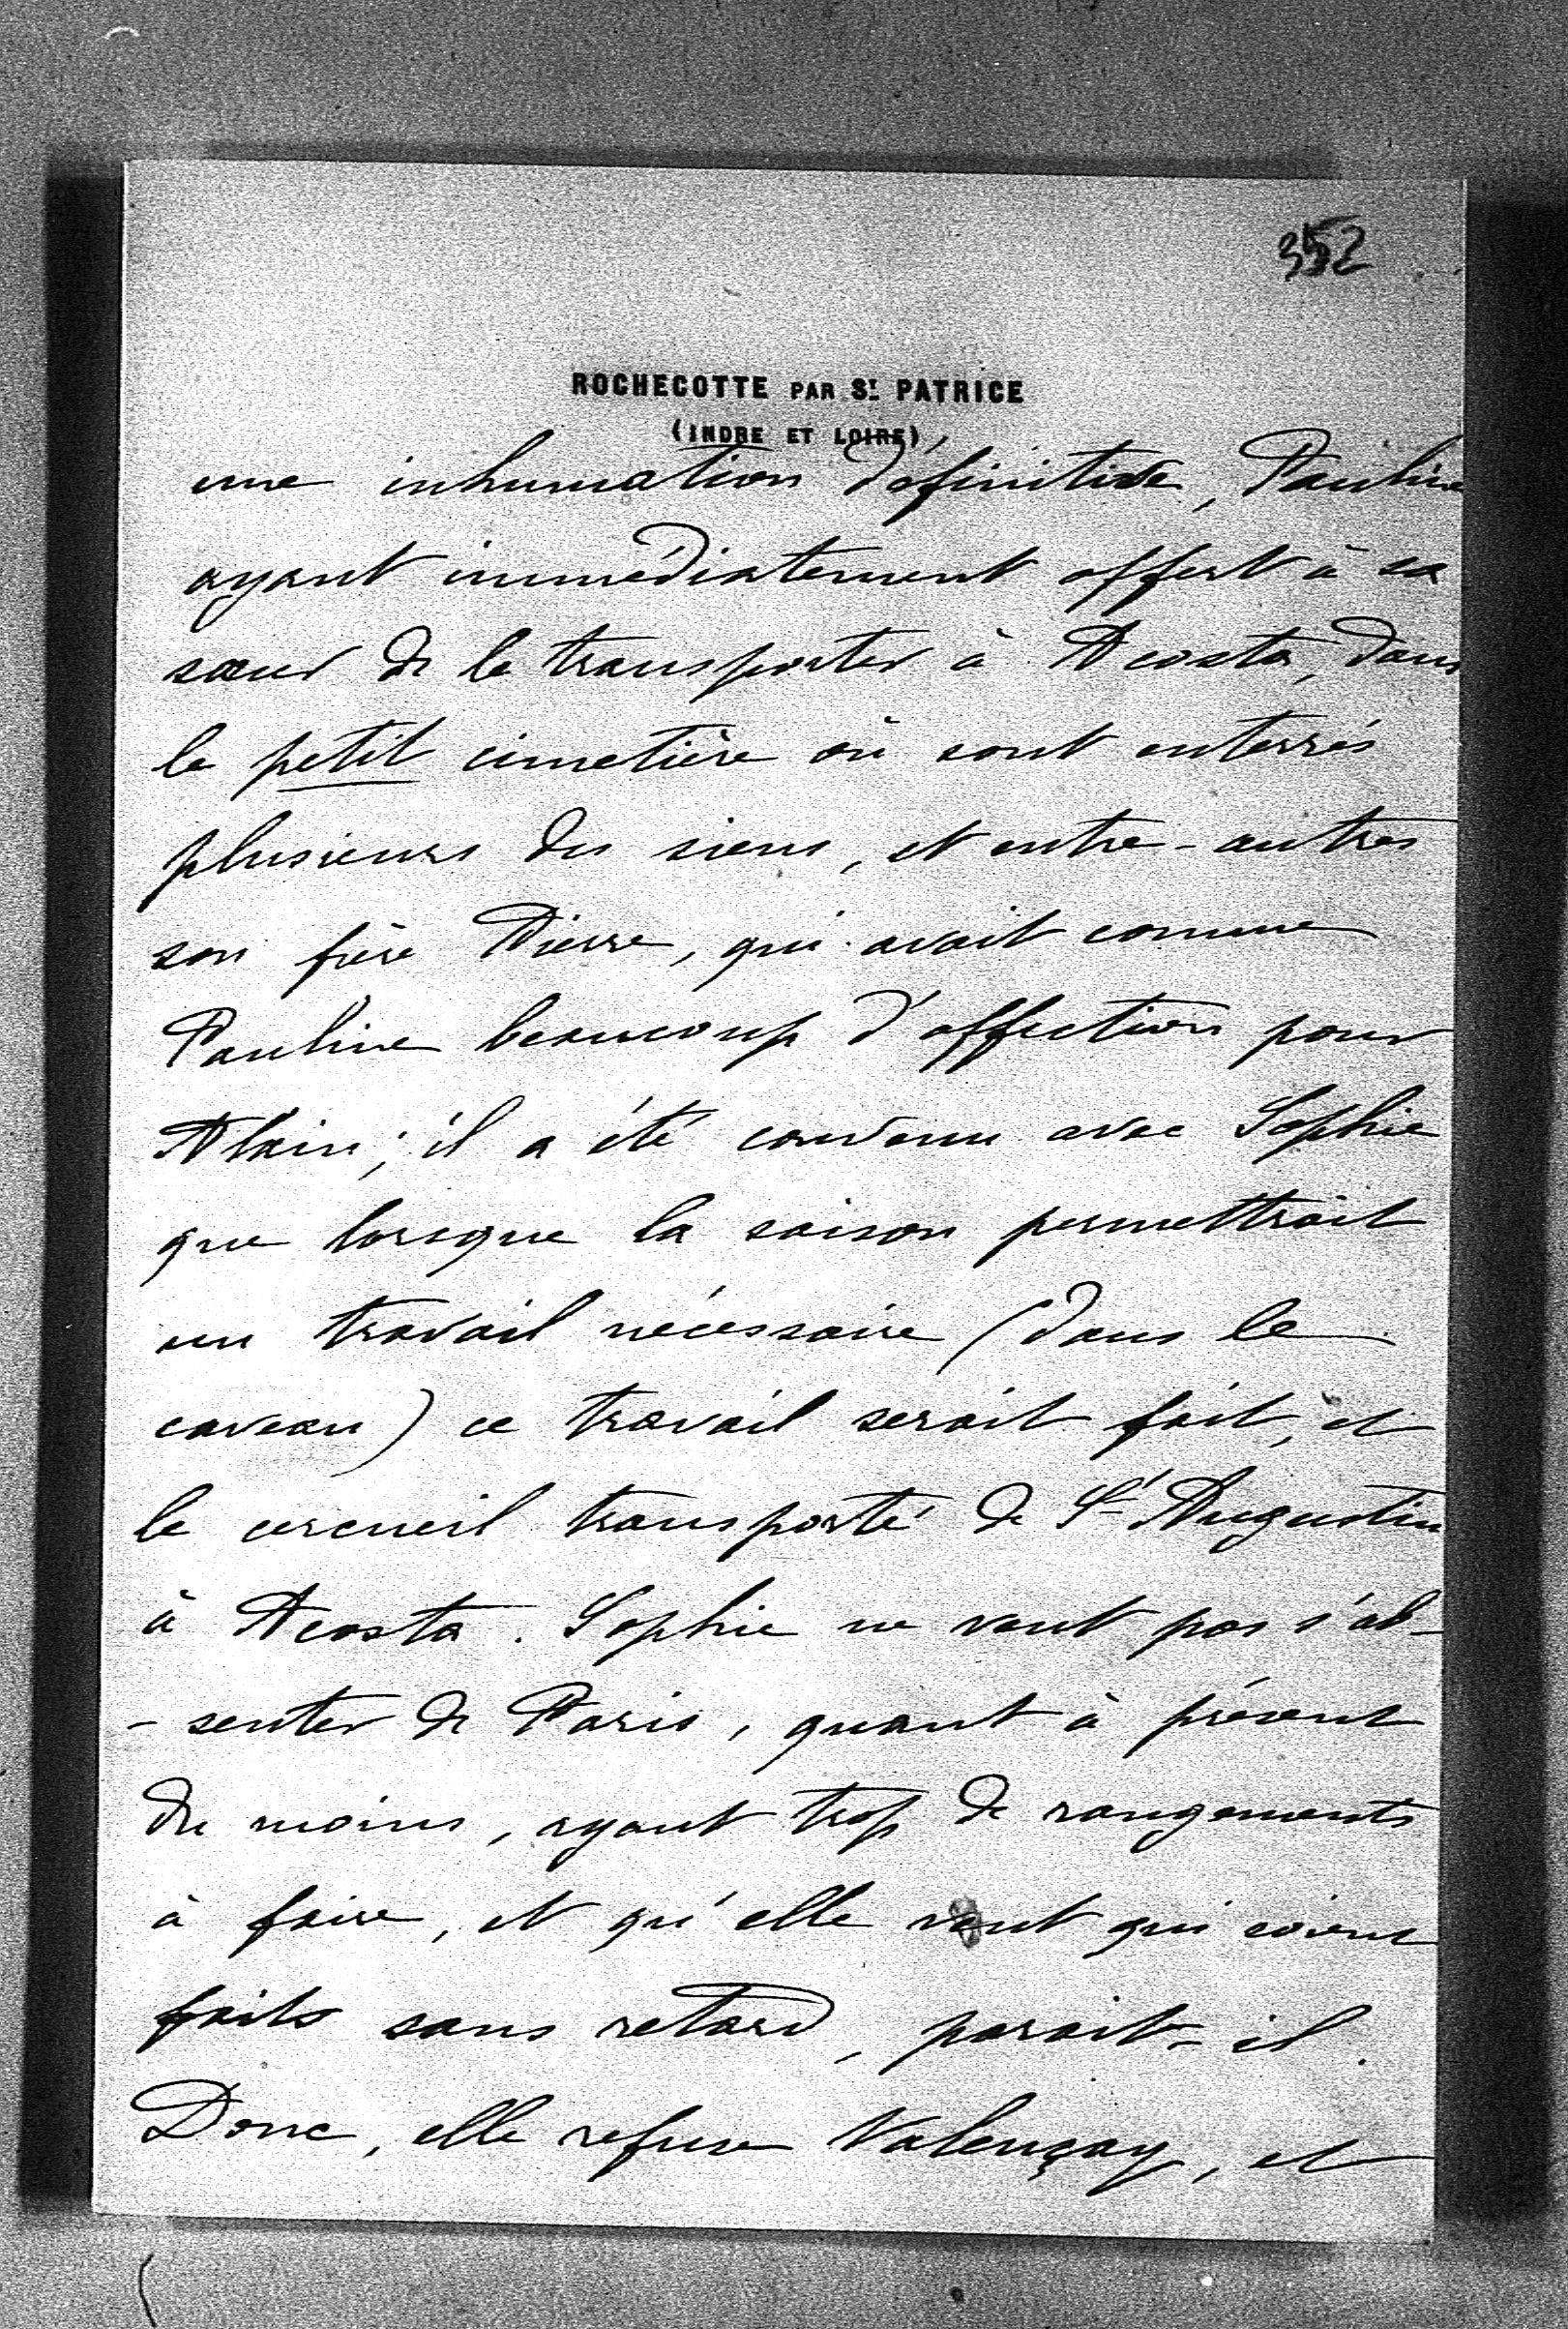 352
ROCHECOTTE PAR ST. PATRICE
(INDRE ET LOIRE)
une inhumation définitive, Pauline
ayant immédiatement offert à sa
sœur de le transporter à Acosta, dans
le petit cimetière où sont enterrés
plusieurs des siens, et entre-autres
son frère Pierre, qui avait comme
Pauline beaucoup d'affection pour
Alain; il a été convenu avec Sophie
que lorsque la saison permettrait
un travail nécessaire (dans le
caveau) ce travail serait fait, et
le cercueil transporté de St Augustin
à Acosta. Sophie ne veut pas s'ab-
- senter de Paris, quant à présent
du moins, ayant trop de rangements
à faire, et qu'elle veut qui soient
faits sans retard, parait-il.
Donc, elle refuse Valençay, et